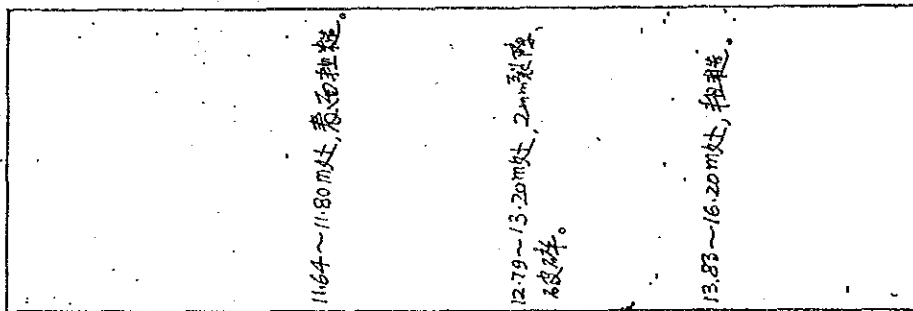 11.64～11.80m处,表面粗糙。
12.79～13.20m处,2mm裂隙、
破碎。
13.83～16.20m处,粗糙。